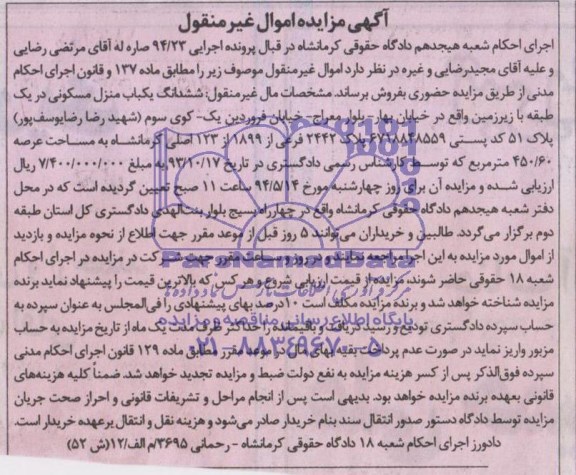 آگهی مزایده اموال غیر منقول
اجرای احکام شعبه هیجدهم دادگاه حقوقی کرمانشاه در قبال پرونده اجرایی ۹۴/۲۳ صاره له آقای مرتضی رضایی
و علیه آقای مجیدرضایی و غیره در نظر دارد اموال غیر منقول موصوف زیر را مطابق ماده ۱۳۷ و قانون اجرای احکام
مدنی از طریق مزایده حضوری بفروش برساند. مشخصات مال غیر منقول: ششدانگ یکباب منزل مسکونی در یک
طبقه با زیرزمین واقع در خیابان بهار- بلوار معراج- خیابان فروردین یک- کوی سوم (شهید رضا رضایوسف‌پور)
پلاک ۵۱ کد پستی پلاک ۲۴۴۲ فرعی از ۱۸۹۹ از ۱۲۳ اصلی کرمانشاه به مساحت عرصه
۴۵۰/۶۰ مترمربع که توسط کارشناس رسمی دادگستری در تاریخ ۹۳/۱۰/۱۷ به مبلغ ۷/۴۰۰/۰۰۰/۰۰۰ ریال
ارزیابی شده و مزایده آن برای روز چهارشنبه مورخ ۹۴/۵/۱۴ ساعت ۱۱ صبح تعیین گردیده است که در محل
دفتر شعبه هیجدهم دادگاه حقوقی کرمانشاه واقع در چهارراه بسیج بلوار بنت‌الهدی دادگستری کل استان طبقه
دوم برگزار می‌گردد. طالبین و خریداران می‌توانند ۵ روز قبل از موعد مقرر جهت اطلاع از نحوه مزایده و بازدید
از اموال مورد مزایده به این اجرا مراجعه نمایند و در روز و ساعت مقرر جهت شرکت در مزایده در اجرای احکام
شعبه ۱۸ حقوقی حاضر شوند. مزایده از قیمت ارزیابی شروع و هر کس که بالاترین قیمت را پیشنهاد نماید برنده
مزایده شناخته خواهد شد و برنده مزایده مکلف است ۱۰ درصد بهای پیشنهادی را فی‌المجلس به عنوان سپرده به
حساب سپرده دادگستری تودیع و رسید دریافت و باقیمانده را حداکثر ظرف مدت یک ماه از تاریخ مزایده به حساب
مزبور واریز نماید در صورت عدم پرداخت بقیه بهای مال در موعد مقرر مطابق ماده ۱۲۹ قانون اجرای احکام مدنی
سپرده فوق‌الذکر پس از کسر هزینه مزایده به نفع دولت ضبط و مزایده تجدید خواهد شد. ضمناً کلیه هزینه‌های
قانونی بعهده برنده مزایده خواهد بود. بدیهی است پس از انجام مراحل و تشریفات قانونی و احراز صحت جریان
مزایده توسط دادگاه دستور صدور انتقال سند بنام خریدار صادر می‌شود و هزینه نقل و انتقال بر عهده خریدار است.
دادورز اجرای احکام شعبه ۱۸ دادگاه حقوقی کرمانشاه - رحمانی ۳۶۹۵/م الف/۱۲(ش ۵۲)
ParsNamadData
پایگاه اطلاع رسانی مناقصه و مزایده
۰۲۱-۸۸۳۴۹۶۷۰-۵